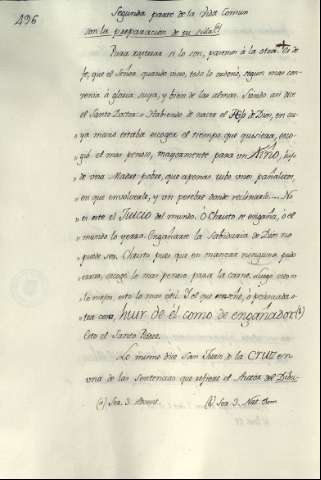 496
Segunda parte de la Vida Comun
con la preparacion de su silla (a)
Para apurar si lo son, paremos à la otra. Es de
Fe, que el Señor quando vino, todo lo ordenò, segun mas con-
venia à gloria suya, y bien de las almas. Siendo asi dice
el Santo Doctor: Habiendo de nacer el Hijo de Dios, en cu-
ya mano estaba escoger el tiempo, que quisiera, esco-
giò el mas penoso, mayormente para un Niño, hijo
de una Madre pobre, que apenas tubo unos pañalitos,
en que envolverle, y un pesebre donde reclinarle.... No
es este el Juicio del mundo. O Christo se engaña, ò el
mundo lo yerra. Engañarse la Sabiduria de Dios no
puede ser. Christo, pues que en manera ninguna pudo
errar, escogiò lo mas penoso para la carne. Luego esto es
lo mejor, esto lo mas util. Y el que enseñe, ò persuada o-
tra cosa, huir de él como de engañador (b)
Esto el Santo Padre.
Lo mismo dice San Juan de la Cruz en
una de las sentencias que refiere el Autor del Dibu-
(a) Ser. 3. Advent. (b) Ser. 3. Nat. Dom.